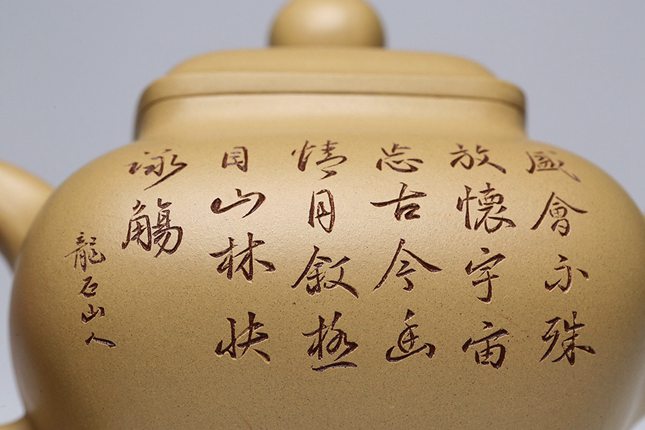 盛會不殊
放懷宇宙
忘古今幽
情用叙極
目山林快
詠觴
龍石山人